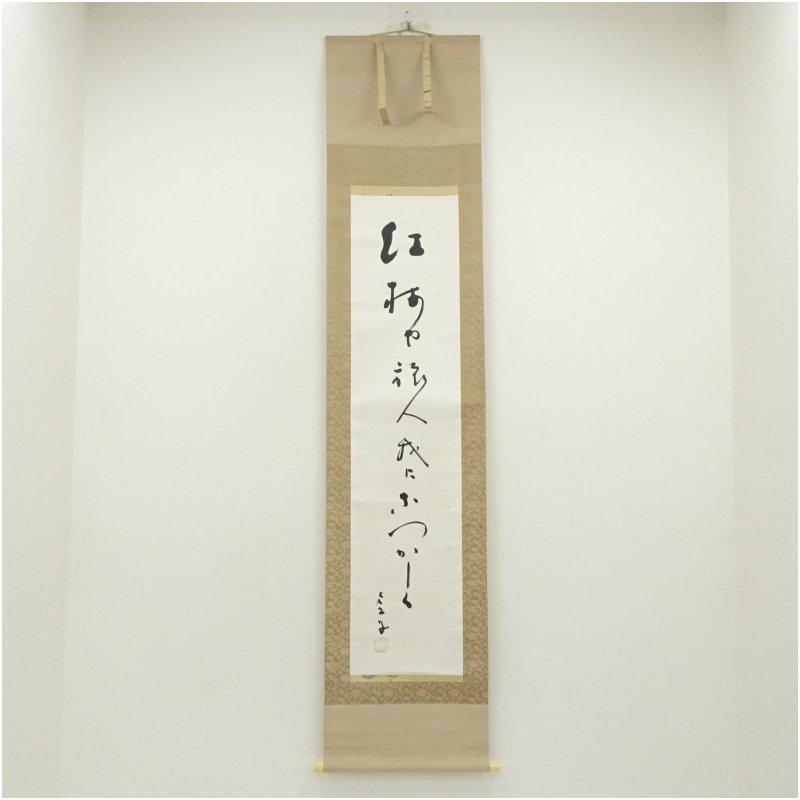 紅梅や旅人我になつかしく
立子